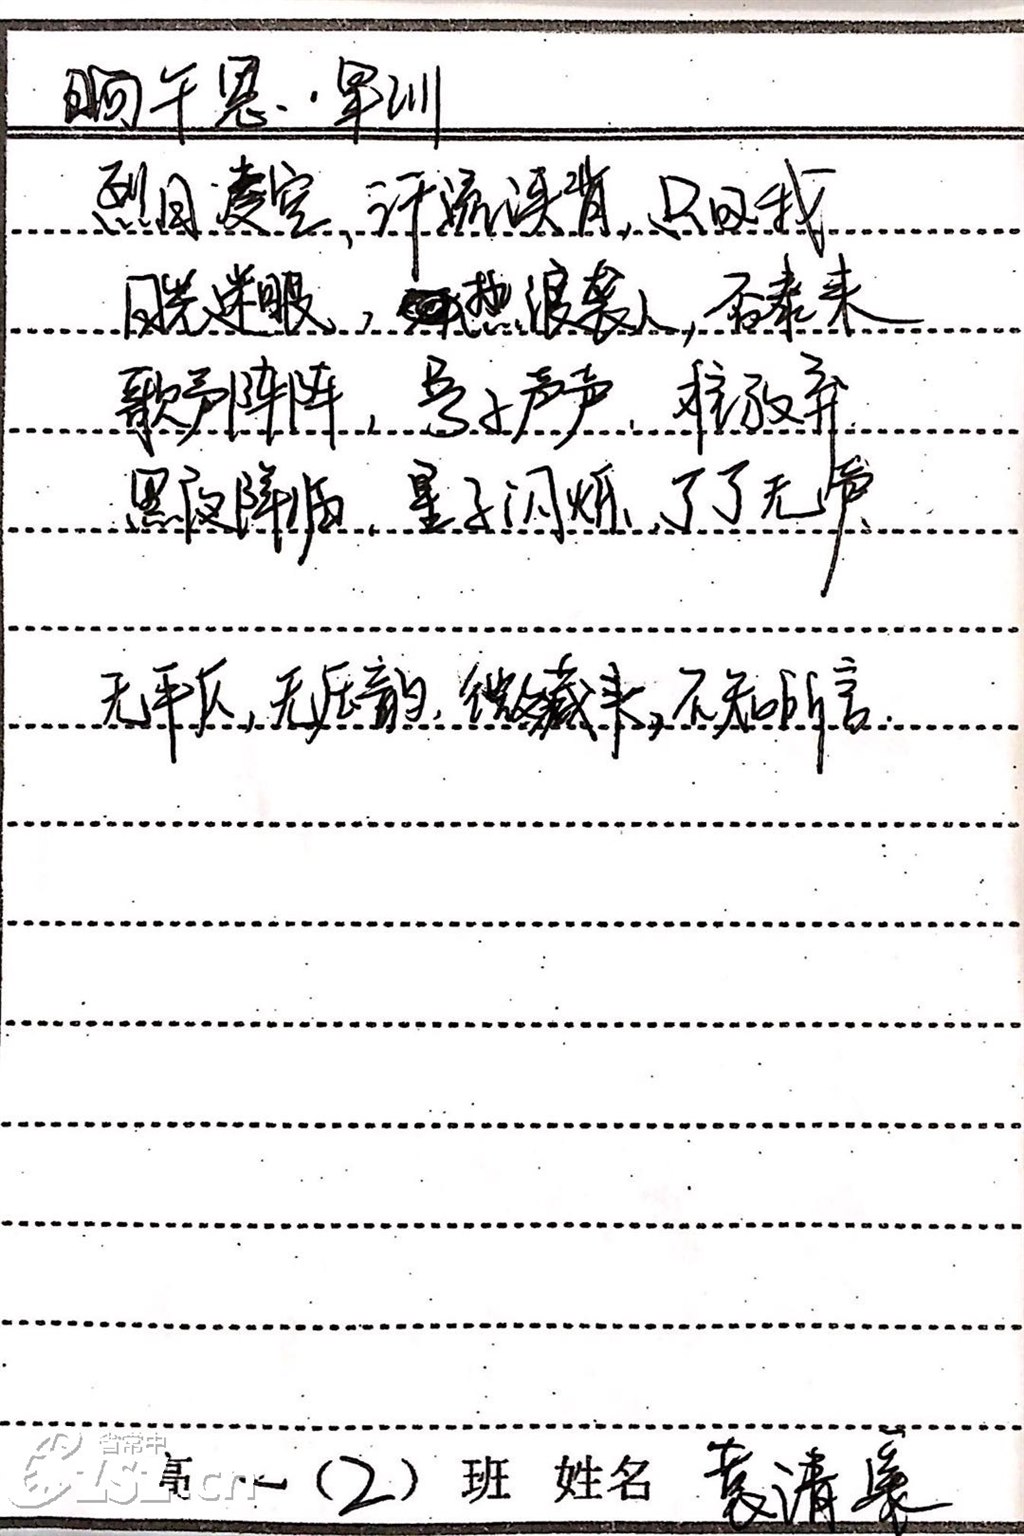 晌午思·军训
烈日凌空，汗流浃背，只因我
日光迷眼，热浪袭人，否泰来
歌声阵阵，号子声声，核放弃
黑夜降临，星子闪烁，了了无声
无平仄，无压韵，微藏头，不知所言.
省常中
高一（2）班 姓名 袁清